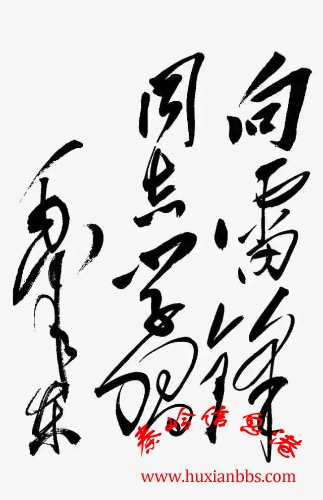 向雷锋
同志学习
毛泽东
秦岭信息港
www.huxianbbs.com